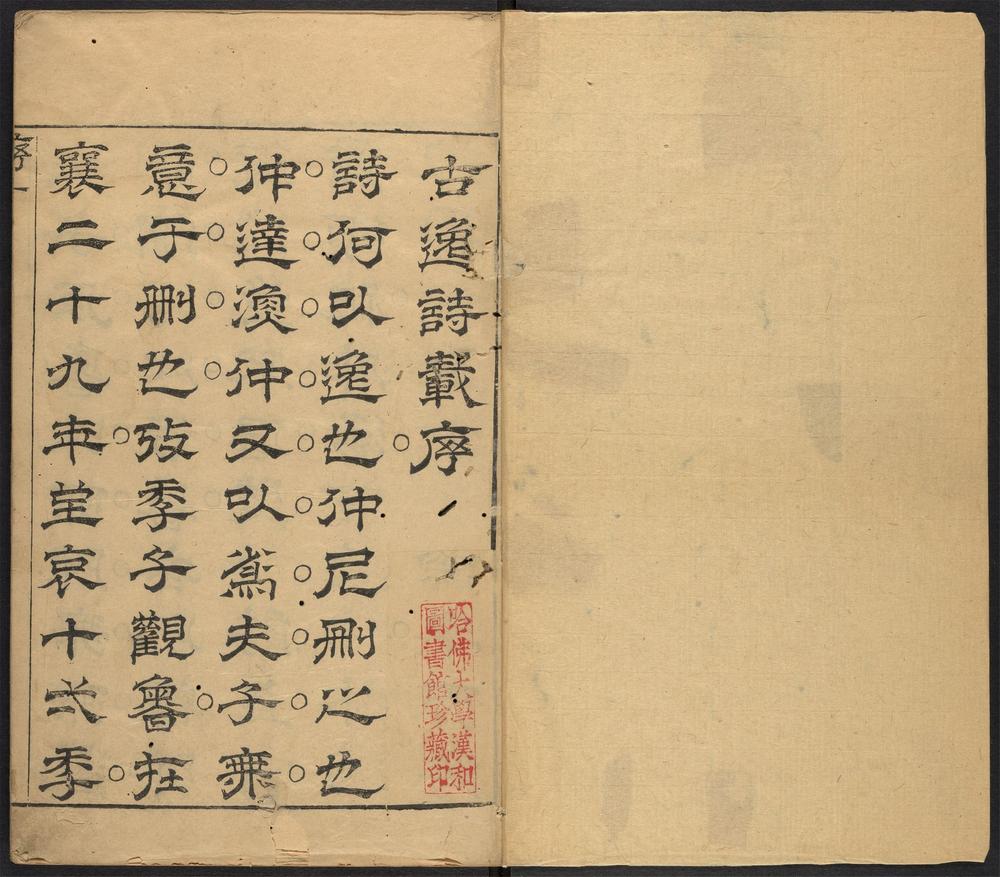 古逸詩載序
詩何以逸也仲尼刪之也
仲達漁仲又以爲夫子無
意于刪也攷季子觀魯在
襄二十九年至哀十弌秊
序一
哈佛大學漢和
圖書館珍藏印